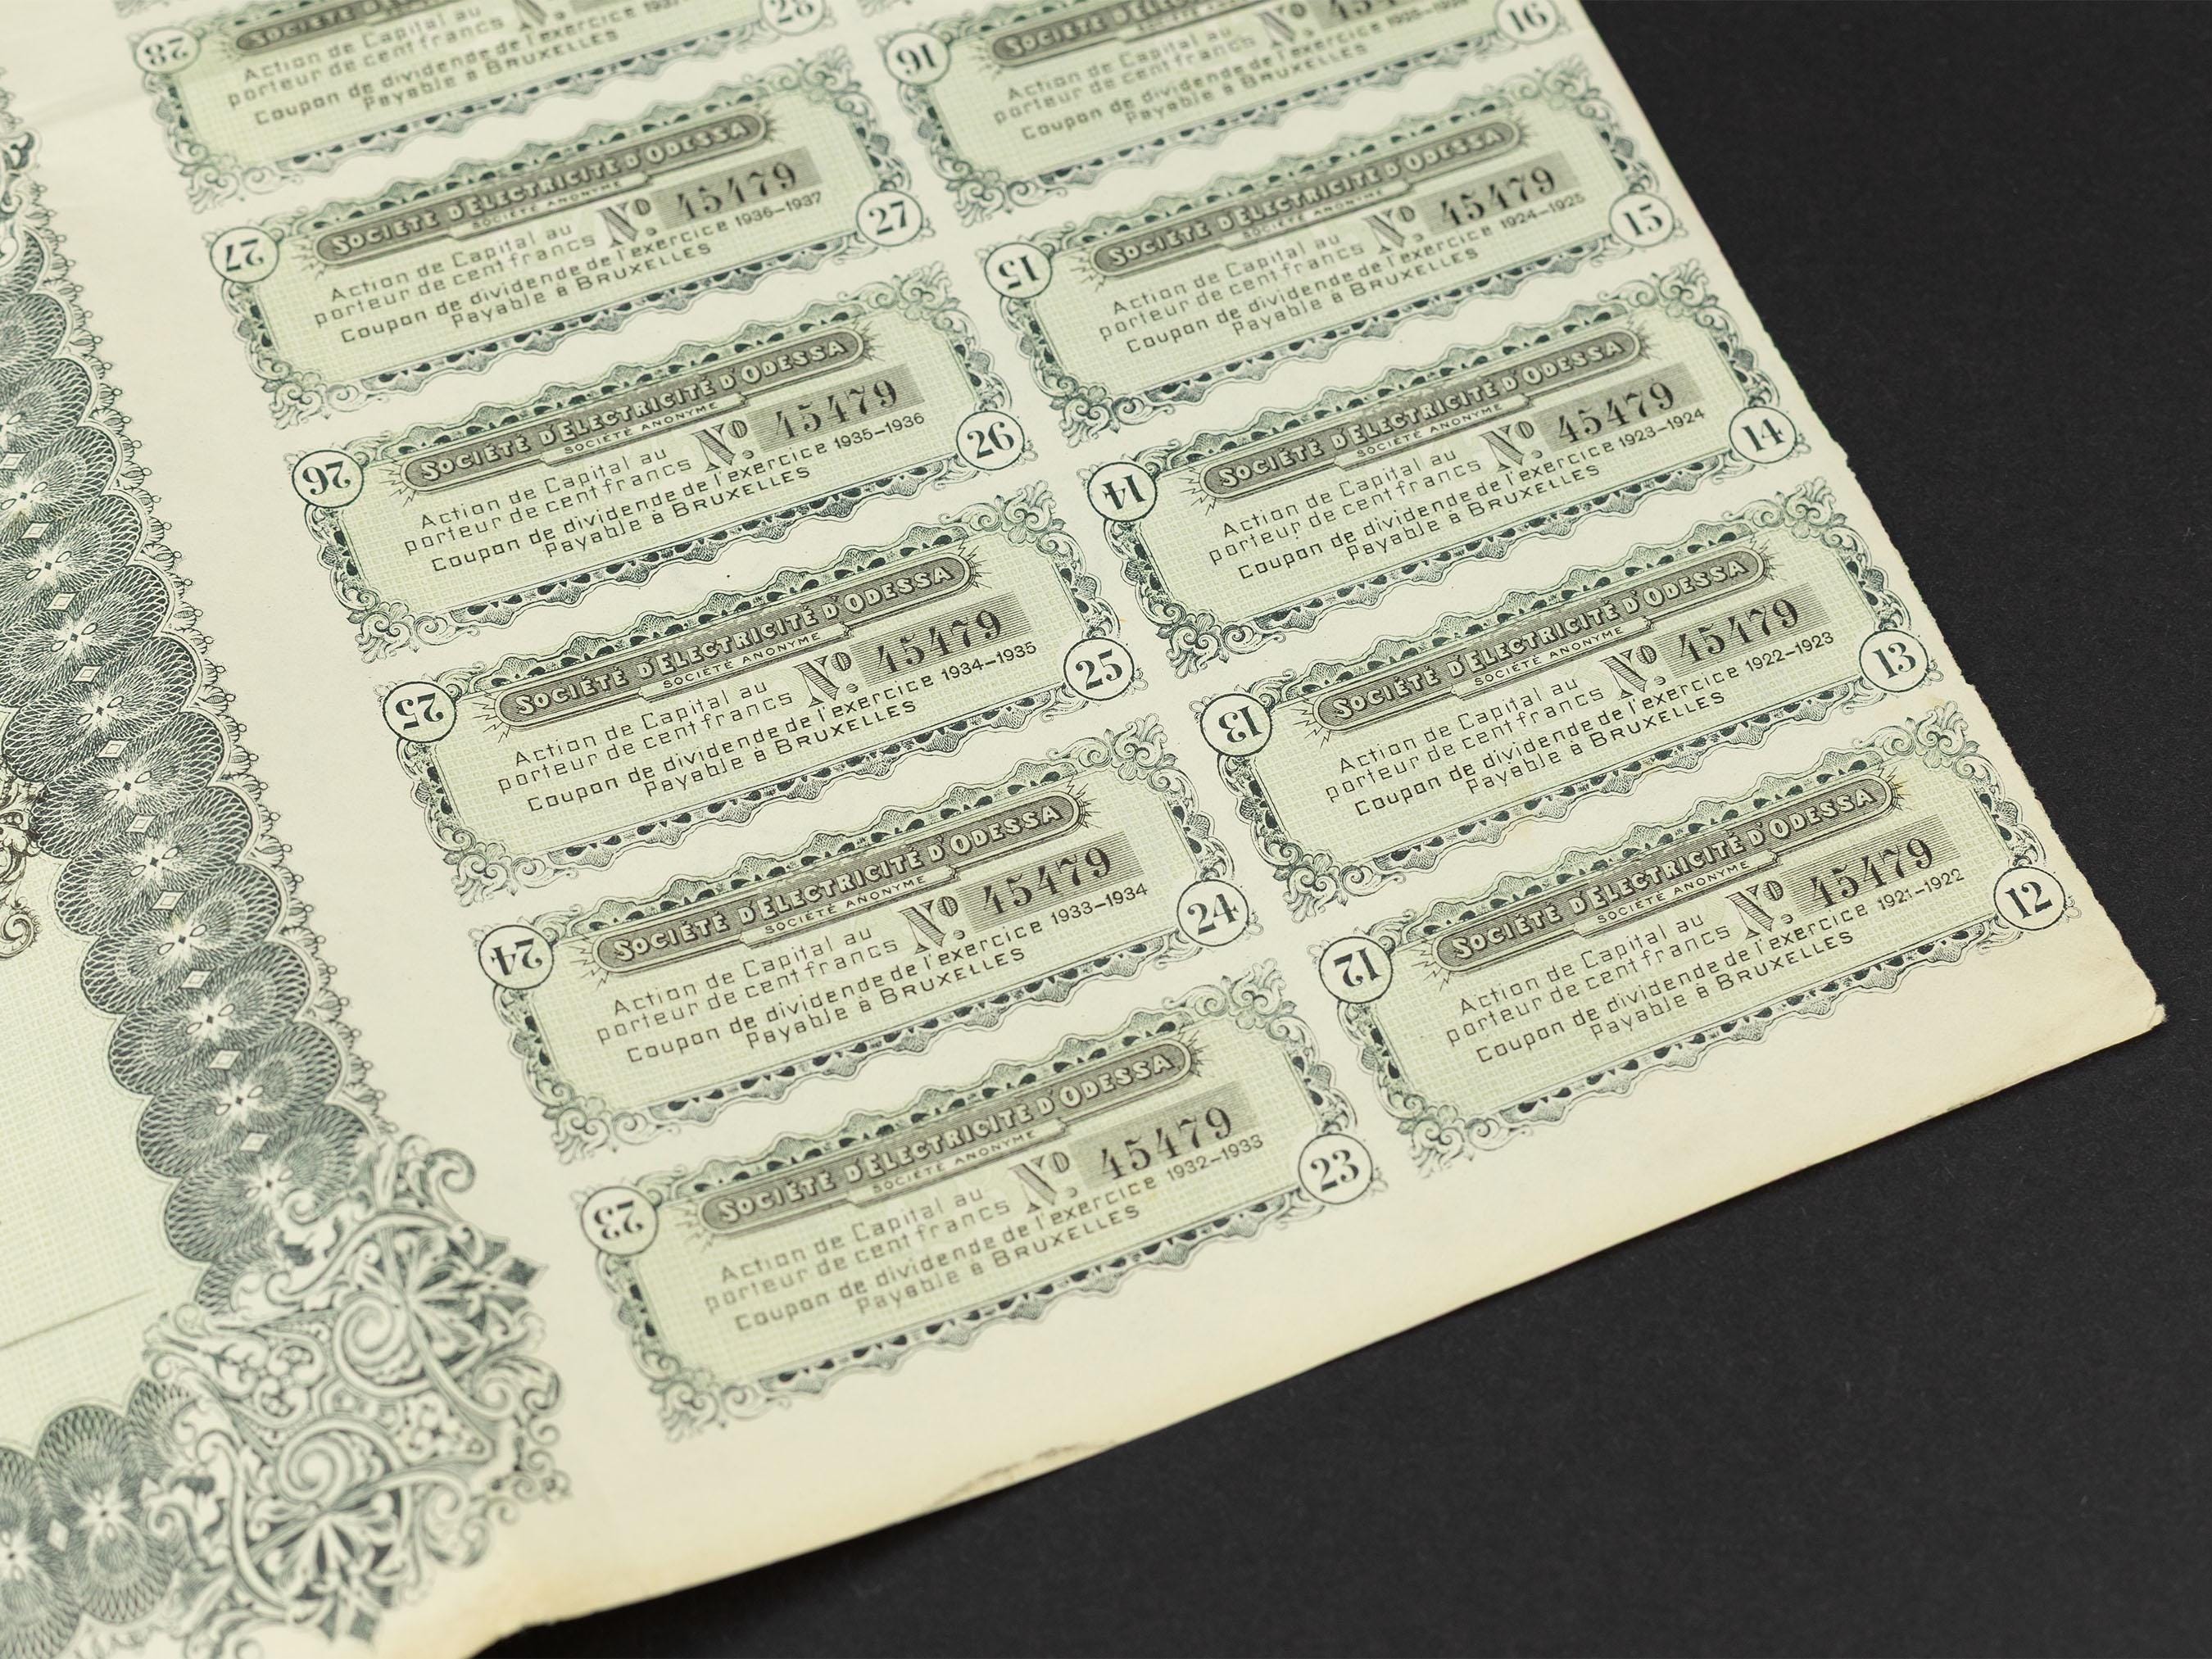 28
SOCIÉTÉ D'ÉLEC
Nº.
Action de Capital au
porteur de cent francs
Coupon de dividende de l'exercice 1937-
Payable à BRUXELLES
28
27
SOCIÉTÉ D'ÉLECTRICITÉ D'ODESSA
SOCIÉTÉ ANONYME
Nº. 45479
Action de Capital au
porteur de cent francs
Coupon de dividende de l'exercice 1936-1937
Payable à BRUXELLES
27
26
SOCIÉTÉ D'ÉLECTRICITÉ D'ODESSA
SOCIÉTÉ ANONYME
Nº. 45479
Action de Capital au
porteur de cent francs
Coupon de dividende de l'exercice 1935-1936
Payable à BRUXELLES
26
25
SOCIÉTÉ D'ÉLECTRICITÉ D'ODESSA
SOCIÉTÉ ANONYME
Nº. 45479
Action de Capital au
porteur de cent francs
Coupon de dividende de l'exercice 1934-1935
Payable à BRUXELLES
25
24
SOCIÉTÉ D'ÉLECTRICITÉ D'ODESSA
SOCIÉTÉ ANONYME
Nº. 45479
Action de Capital au
porteur de cent francs
Coupon de dividende de l'exercice 1933-1934
Payable à BRUXELLES
24
23
SOCIÉTÉ D'ÉLECTRICITÉ D'ODESSA
SOCIÉTÉ ANONYME
Nº. 45479
Action de Capital au
porteur de cent francs
Coupon de dividende de l'exercice 1932-1933
Payable à BRUXELLES
23
16
SOCIÉTÉ D'ÉLEC
Nº.
Action de Capital au
porteur de cent francs
Coupon de dividende de l'exercice
Payable à BRUXELLES
16
15
SOCIÉTÉ D'ÉLECTRICITÉ D'ODESSA
SOCIÉTÉ ANONYME
Nº. 45479
Action de Capital au
porteur de cent francs
Coupon de dividende de l'exercice 1924-1925
Payable à BRUXELLES
15
14
SOCIÉTÉ D'ÉLECTRICITÉ D'ODESSA
SOCIÉTÉ ANONYME
Nº. 45479
Action de Capital au
porteur de cent francs
Coupon de dividende de l'exercice 1923-1924
Payable à BRUXELLES
14
13
SOCIÉTÉ D'ÉLECTRICITÉ D'ODESSA
SOCIÉTÉ ANONYME
Nº. 45479
Action de Capital au
porteur de cent francs
Coupon de dividende de l'exercice 1922-1923
Payable à BRUXELLES
13
12
SOCIÉTÉ D'ÉLECTRICITÉ D'ODESSA
SOCIÉTÉ ANONYME
Nº. 45479
Action de Capital au
porteur de cent francs
Coupon de dividende de l'exercice 1921-1922
Payable à BRUXELLES
12